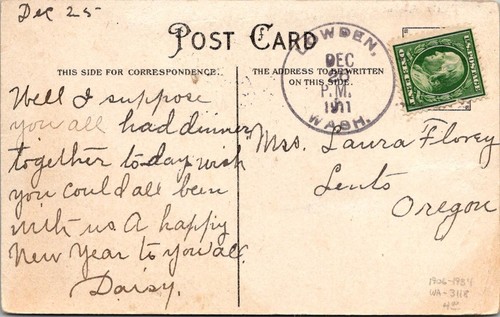 Dec 25
POST CARD
THIS SIDE FOR CORRESPONDENCE.
THE ADDRESS TO BE WRITTEN
ON THIS SIDE.
LOWDEN,
DEC
P.M.
1911
WASH.
U.S. POSTAGE
ONE CENT
Well I suppose
you all had dinner
together to-day wish
you could all been
with us A happy
New Year to you all.
Daisy.
Mrs. Laura Florey
Lents
Oregon
1906-1934
WA-3118
4.00